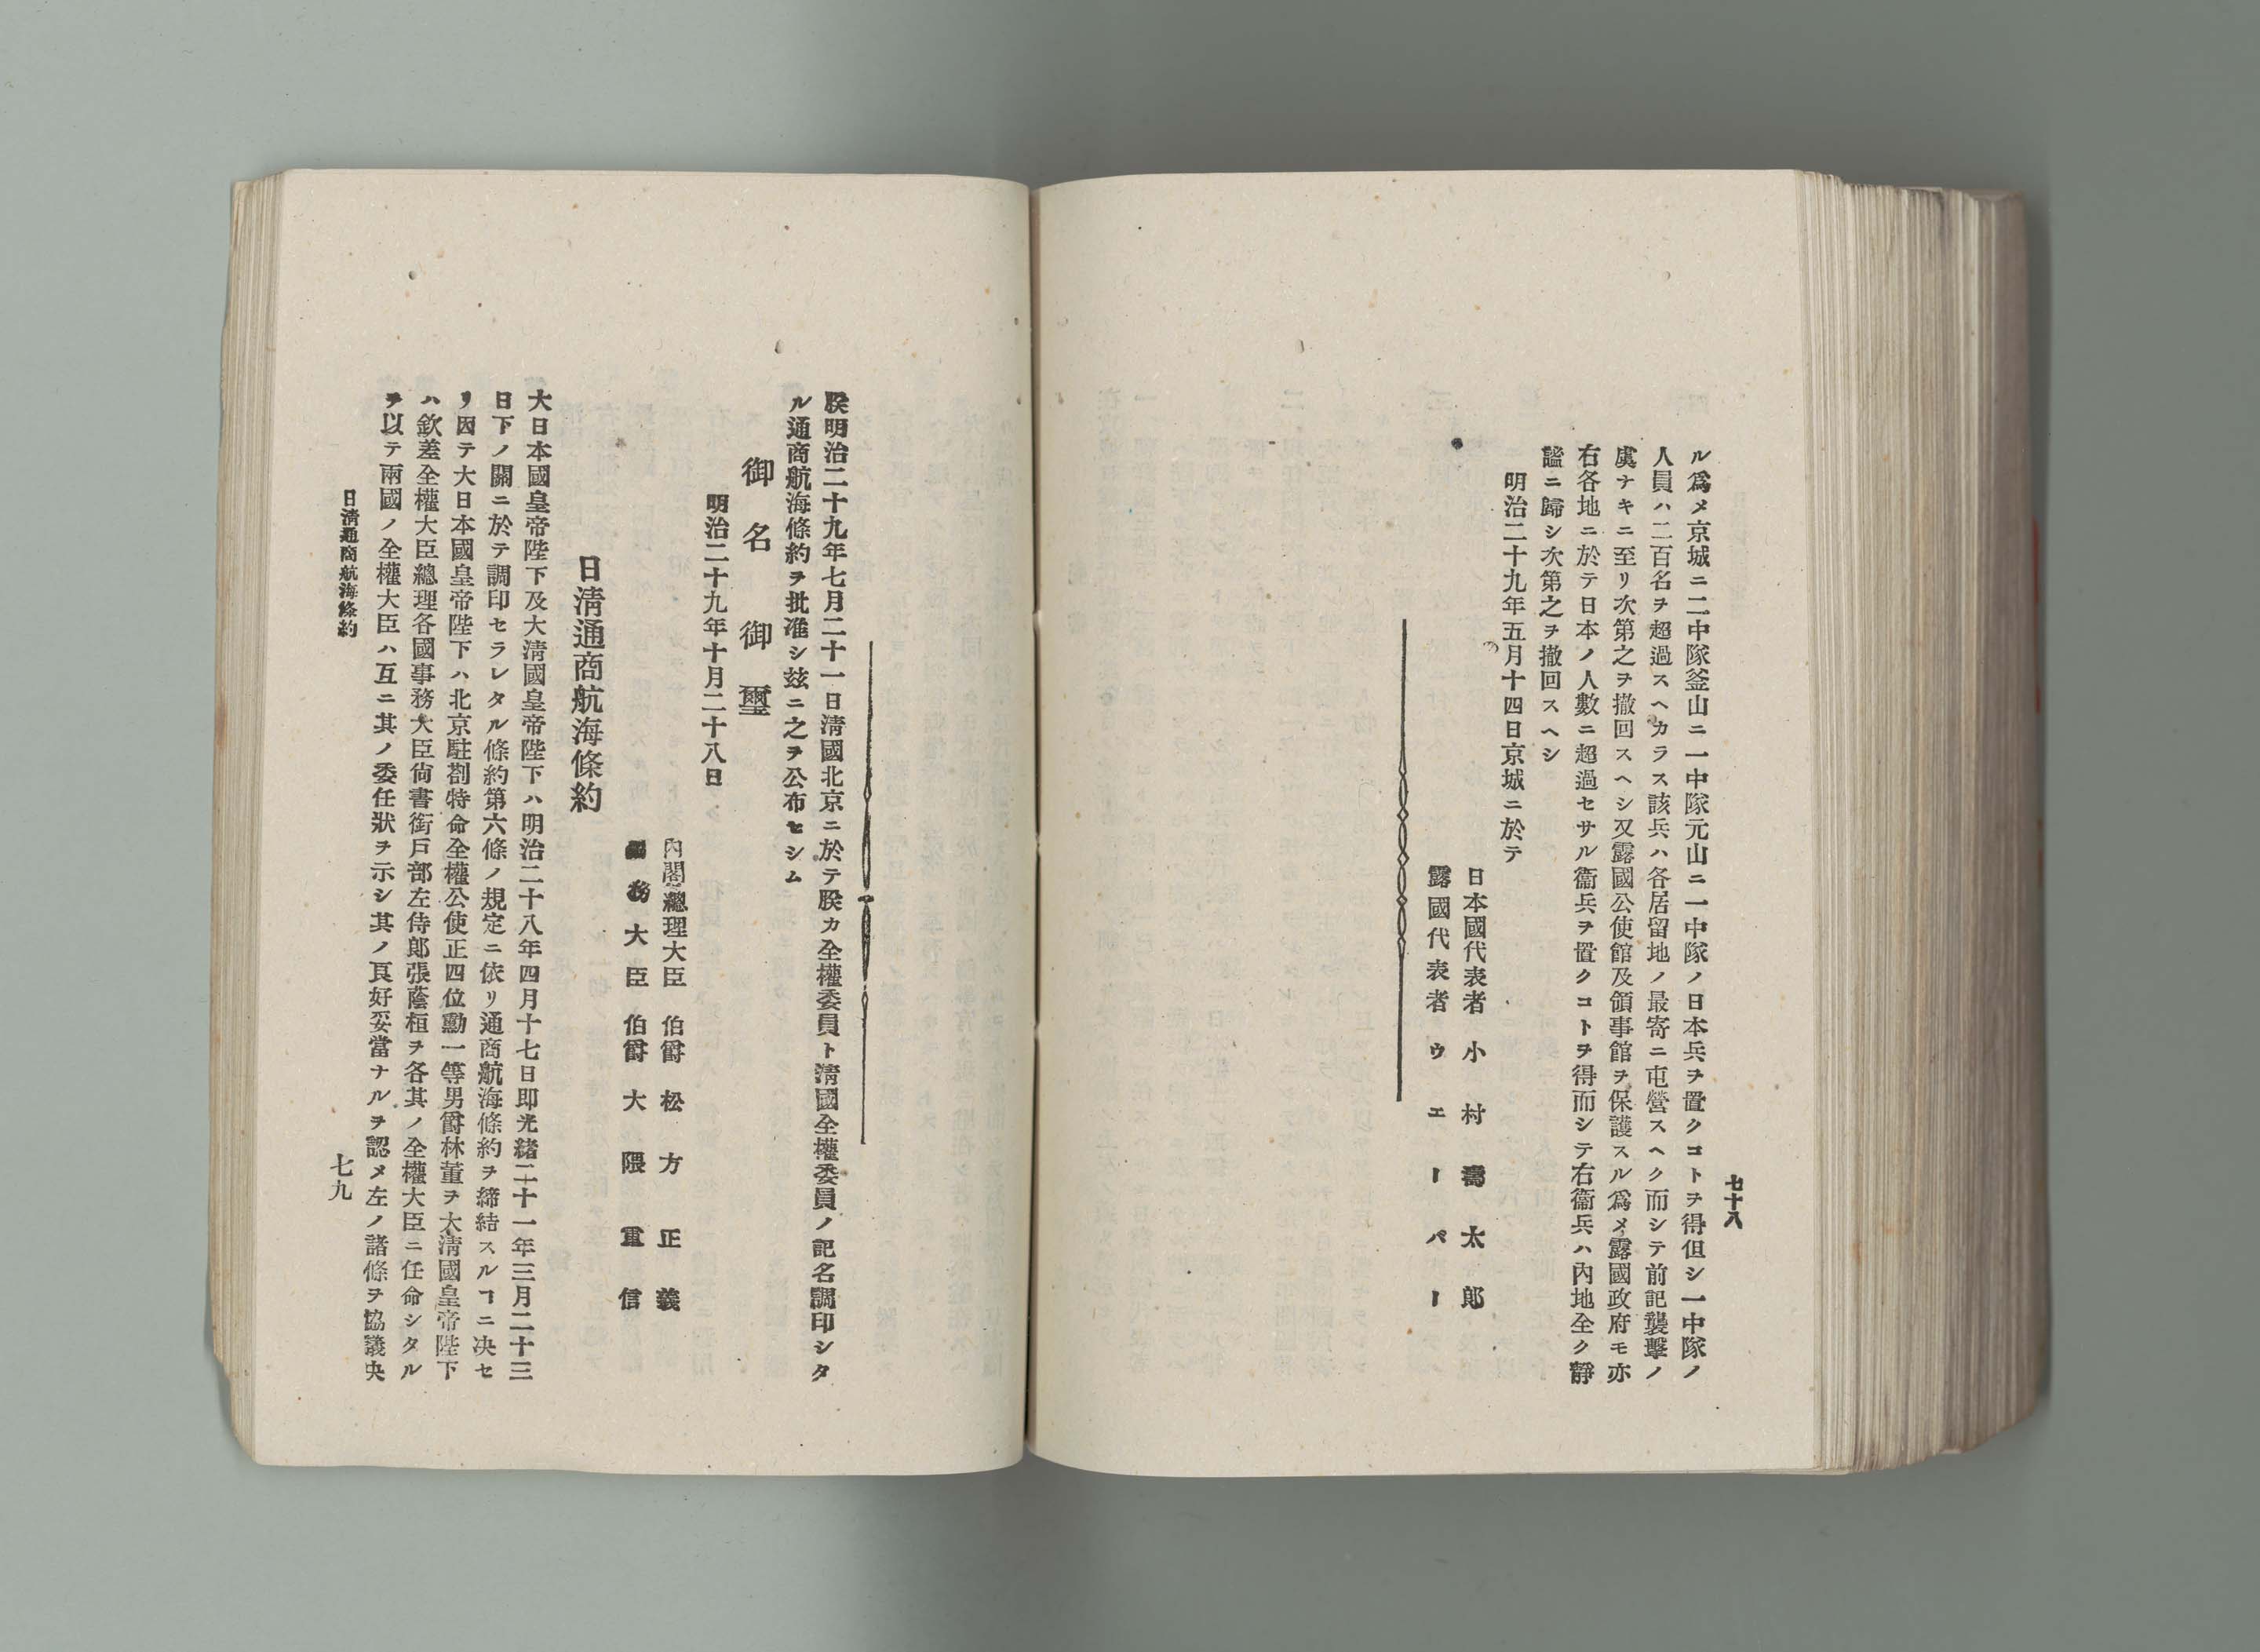 七十八
ル爲メ京城ニ二中隊釜山ニ一中隊元山ニ一中隊ノ日本兵ヲ置クコトヲ得但シ一中隊ノ
人員ハ二百名ヲ超過スヘカラス該兵ハ各居留地ノ最寄ニ屯營スヘク而シテ前記襲擊ノ
虞ナキニ至リ次第之ヲ撤回スヘシ又露國公使館及領事館ヲ保護スル爲メ露國政府モ亦
右各地ニ於テ日本ノ人數ニ超過セサル衞兵ヲ置クコトヲ得而シテ右衞兵ハ內地全ク靜
謐ニ歸シ次第之ヲ撤回スヘシ
明治二十九年五月十四日京城ニ於テ
日本國代表者 小村壽太郎
露國代表者 ウエーバー
朕明治二十九年七月二十一日淸國北京ニ於テ朕カ全權委員ト淸國全權委員ノ記名調印シタ
ル通商航海條約ヲ批准シ玆ニ之ヲ公布セシム
御名御璽
明治二十九年十月二十八日
內閣總理大臣 伯爵 松方正義
務大臣 伯爵 大隈重信
日淸通商航海條約
大日本國皇帝陛下及大淸國皇帝陛下ハ明治二十八年四月十七日即光緖二十一年三月二十三
日下ノ關ニ於テ調印セラレタル條約第六條ノ規定ニ依リ通商航海條約ヲ締結スルヿニ決セ
リ因テ大日本國皇帝陛下ハ北京駐劄特命全權公使正四位勳一等男爵林董ヲ大淸國皇帝陛下
ハ欽差全權大臣總理各國事務大臣尙書銜戶部左侍郎張蔭桓ヲ各其ノ全權大臣ニ任命シタル
ヲ以テ兩國ノ全權大臣ハ互ニ其ノ委任狀ヲ示シ其ノ良好妥當ナルヲ認メ左ノ諸條ヲ協議央
日淸通商航海條約
七九